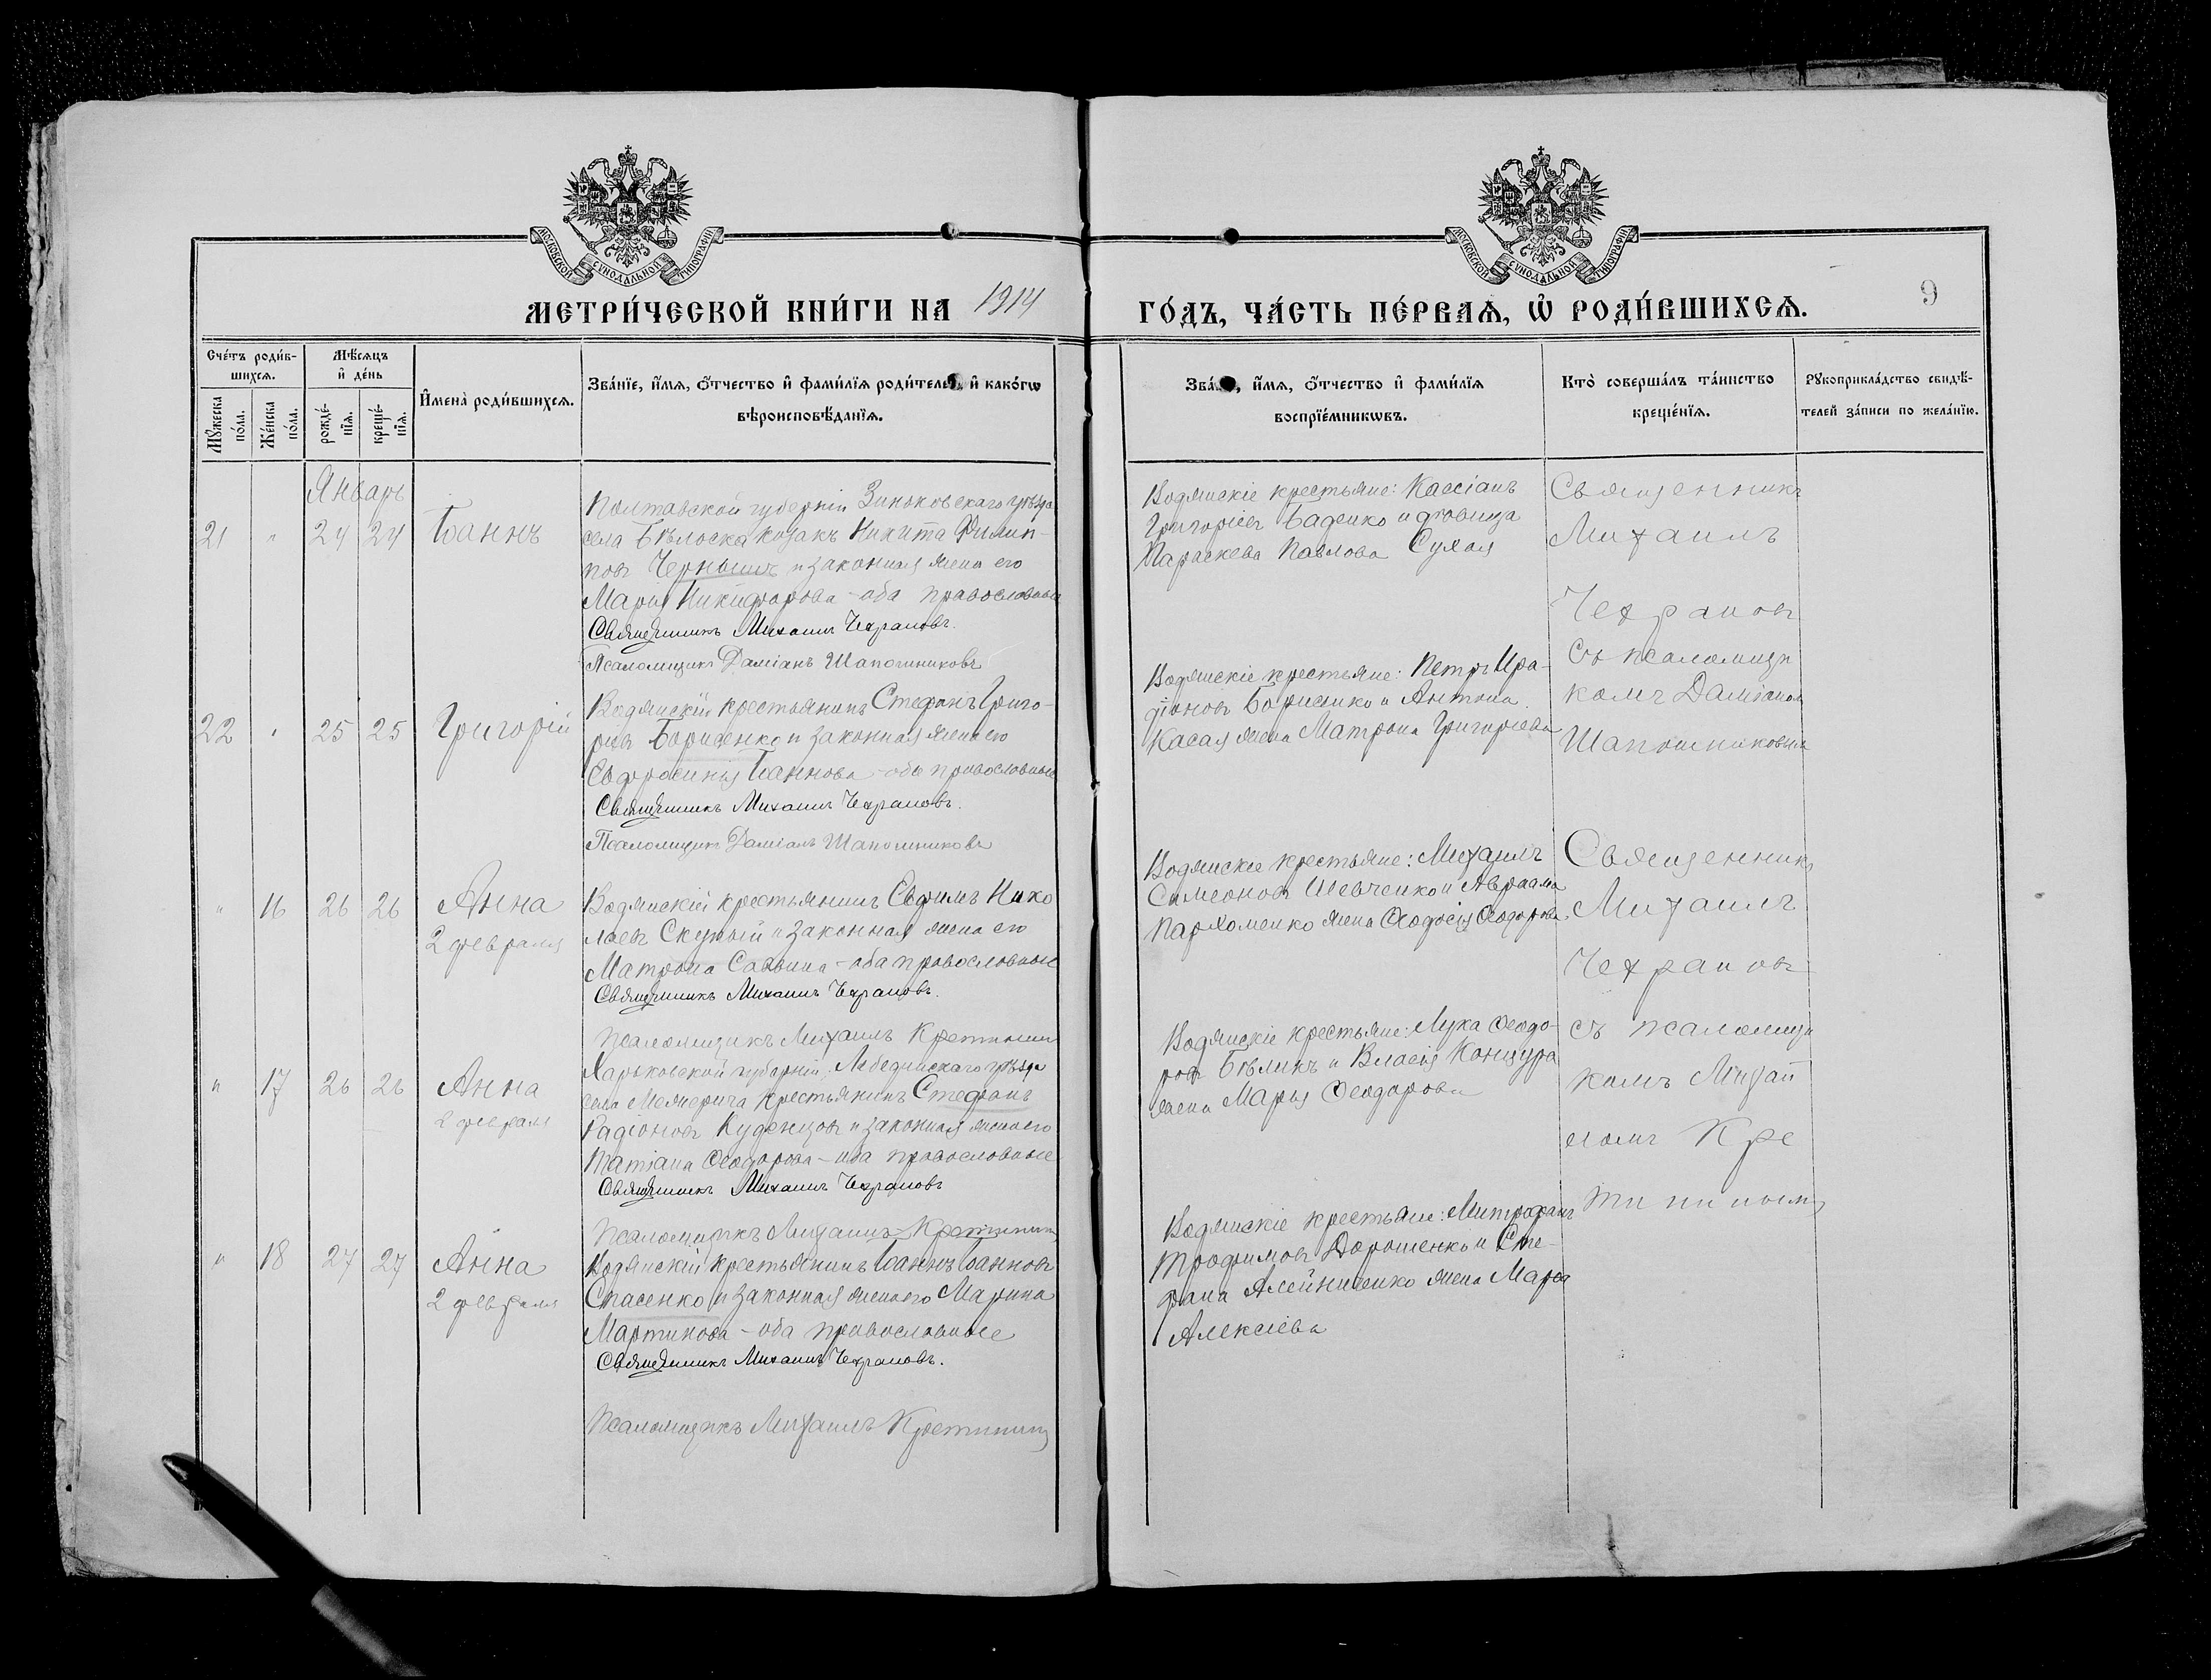 МОСКОВСКОЙ СУНОДАЛЬНОЙ ТИПОГРАФІИ
МОСКОВСКОЙ СУНОДАЛЬНОЙ ТИПОГРАФІИ
МЕТРИ́ЧЕСКОЙ КНИ́ГИ НА 1914
ГО́ДЪ, ЧА́СТЬ ПЕ́РВАѦ, Ѡ҆ РОДИ́ВШИХСѦ.
9
Сче́тъ роди́в-
шихсѧ.
Мѣ́сѧцъ
и҆ де́нь
Мꙋ́жеска
по́ла.
Же́нска
по́ла.
рожде́-
нїѧ.
креще́-
нїѧ.
И҆мена̀ роди́вшихсѧ.
Зва́нїе, и҆́мѧ, ѻ҆́тчество и҆ фами́лїѧ роди́телей, и҆ како́гѡ
вѣроисповѣ́данїѧ.
Зва́нїе, и҆́мѧ, ѻ҆́тчество и҆ фами́лїѧ
воспрїе́мникѡвъ.
Кто̀ соверша́лъ та́инство
креще́нїѧ.
Рꙋкоприкла́дство свидѣ́-
телей за́писи по жела́нїю.
Январь
21 " 24 24 Іоаннъ
Полтавской губерніи Зиньковскаго уѣзда
села Бѣлоска козакъ Никита Филип-
повъ Чернышъ и законная жена его
Марія Никифорова - оба православные
Священникъ Михаилъ Чехрановъ.
Псаломщикъ Даміанъ Шапошниковъ
Водянскіе крестьяне: Кассіанъ
Григоріевъ Баденко и дѣвица
Параскева Павлова Сухая
Священникъ
Михаилъ
Чехрановъ
съ псаломщи
комъ Даміаномъ
Шапошниковымъ
22 " 25 25 Григорій
Водянскій крестьянинъ Стефанъ Григо-
ріевъ Борисенко и законная жена его
Евфросинія Іоаннова - оба православные
Священникъ Михаилъ Чехрановъ.
Псаломщикъ Даміанъ Шапошниковъ
Водянскіе крестьяне: Петръ Ира-
діоновъ Борисенко и Антона
Касая жена Матрона Григоріева
" 16 26 26 Анна
2 февраля
Водянскій крестьянинъ Евфимъ Нико
лаевъ Скупый и законная жена его
Матрона Саввина - оба православные
Священникъ Михаилъ Чехрановъ.
Псаломщикъ Михаилъ Кретининъ
Водянскіе крестьяне: Михаилъ
Симеоновъ Шевченко и Авраама
Пархоменко жена Ѳеодосія Ѳеодорова
Священникъ
Михаилъ
Чехрановъ
съ псаломщи
комъ Михаи
ломъ Кре
тининымъ
" 17 26 26 Анна
2 февраля
Харьковской губерніи, Лебединскаго уѣзда
села Межерича крестьянинъ Стефанъ
Радіоновъ Куденцовъ и законная жена его
Татіана Ѳеодорова - оба православные
Священникъ Михаилъ Чехрановъ
Псаломщикъ Михаилъ Кретининъ
Водянскіе крестьяне: Лука Ѳеодо-
ровъ Бѣликъ и Власія Концура
жена Марія Ѳеодорова
" 18 27 27 Анна
2 февраля
Водянскій крестьянинъ Іоаннъ Іоанновъ
Спасенко и законная жена его Марина
Мартинова - оба православные
Священникъ Михаилъ Чехрановъ.
Псаломщикъ Михаилъ Кретининъ
Водянскіе крестьяне: Митрофанъ
Трофимовъ Дорошенко и Сте-
фана Алейниченко жена Марія
Алексіева